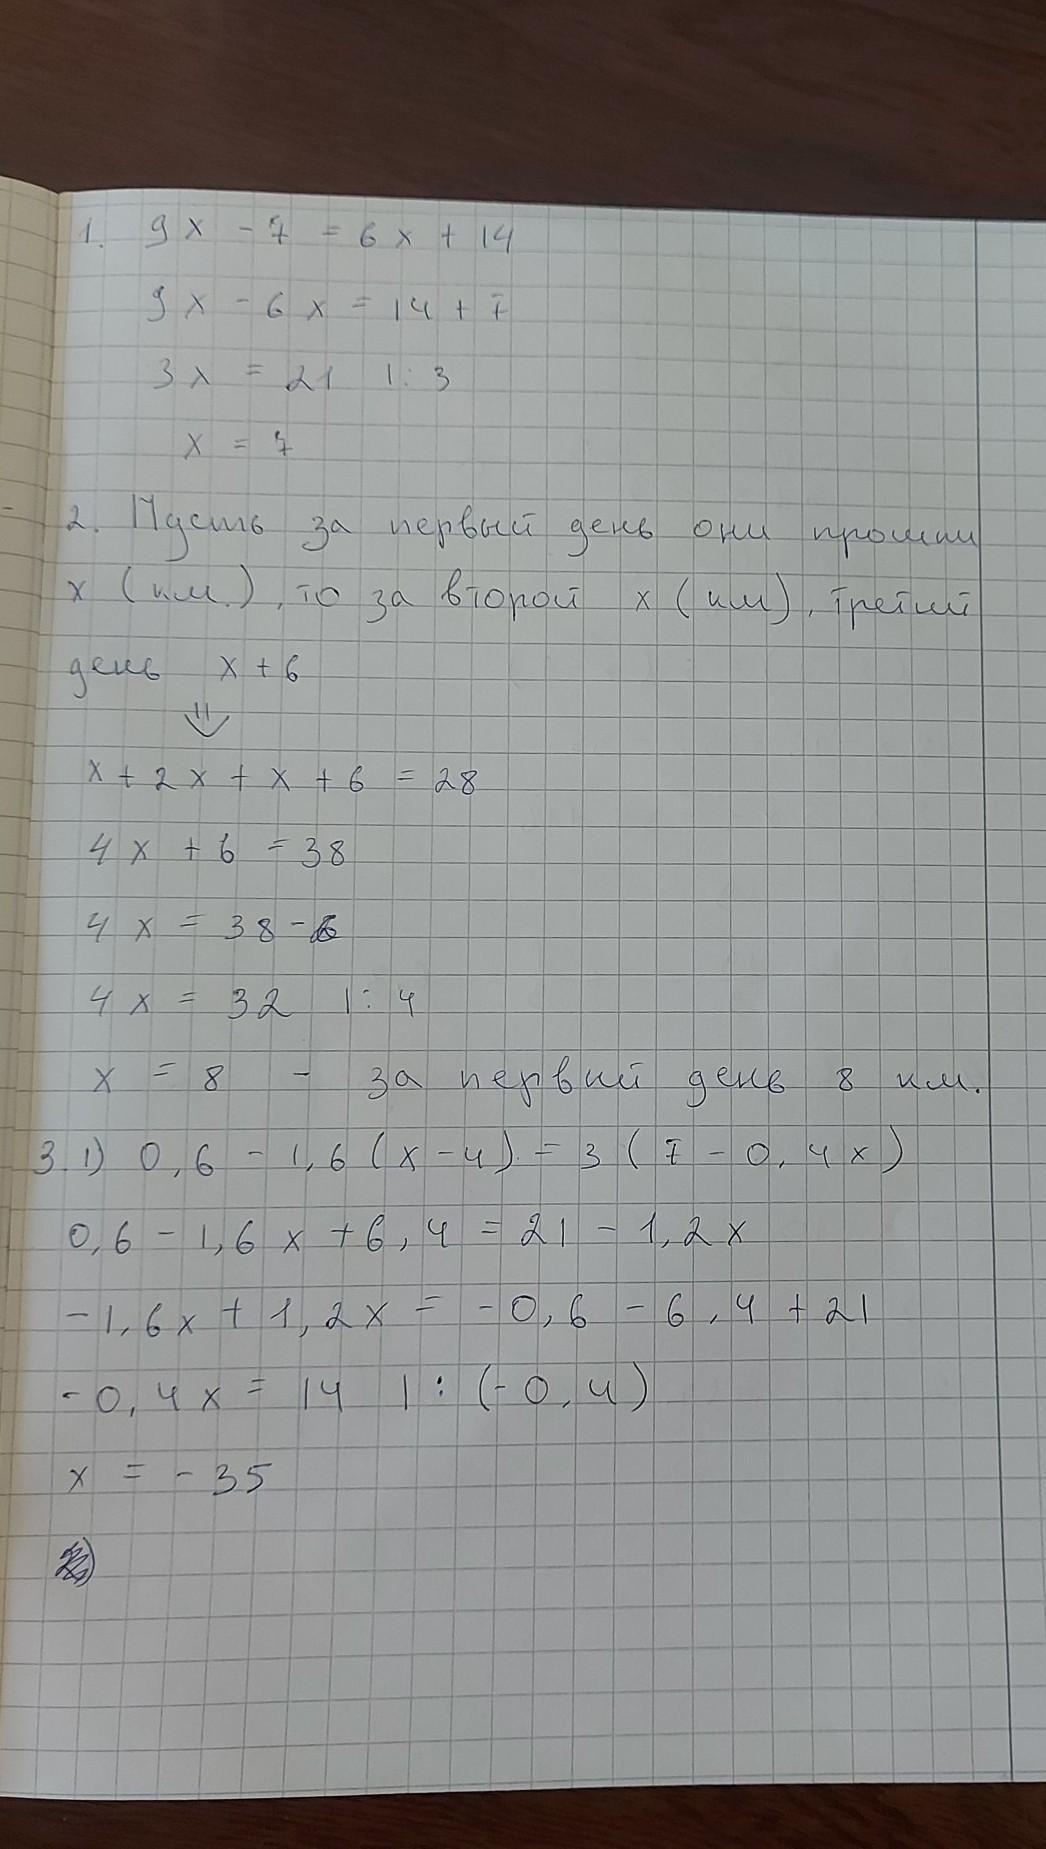 1. 9x - 7 = 6x + 14
9x - 6x = 14 + 7
3x = 21 |: 3
x = 7
2. Пусть за первый день они прошли
x (км.), то за второй x (км), третий
день x + 6
⇓
x + 2x + x + 6 = 28
4x + 6 = 38
4x = 38 - 6
4x = 32 |: 4
x = 8 - за первый день 8 км.
3. 1) 0,6 - 1,6 (x - 4) = 3 (7 - 0,4x)
0,6 - 1,6x + 6,4 = 21 - 1,2x
-1,6x + 1,2x = -0,6 - 6,4 + 21
-0,4x = 14 |: (-0,4)
x = -35